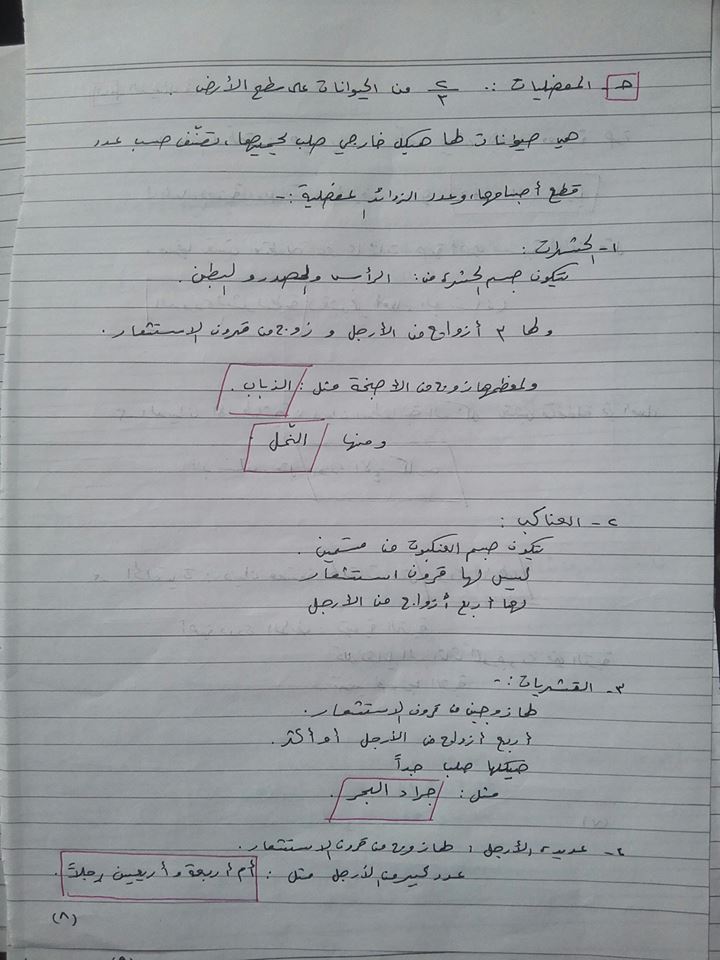 حـ - المفضليات :. ٢/٣ من الحيوانات على سطح الأرض
هي حيوانات لها هيكل خارجي صلب يحميها، تصنّف حسب عدد
قطع أجسامها، وعدد الزوائد المفضلية :-
١- الحشرات :
يتكون جسم الحشرة من : الرأس والصدر والبطن .
ولها ٣ أزواج من الأرجل و زوج من قرون الاستشعار .
ولمعظمها زوج من الأجنحة مثل : الذباب .
ومنها النّمل
٢- العناكب :
يتكون جسم العنكبوت من قسمين .
ليس لها قرون استشعار
لها أربع أزواج من الأرجل
٣- القشريات :-
لها زوجين من قرون الاستشعار .
أربع أزواج من الأرجل أو أكثر .
هيكلها صلب جداً
مثل : جراد البحر .
٤- عديدة الأرجل : لها زوج من قرون الاستشعار .
عدد كبير من الأرجل مثل : أم أربعة وأربعين رجلاً .
(٨)